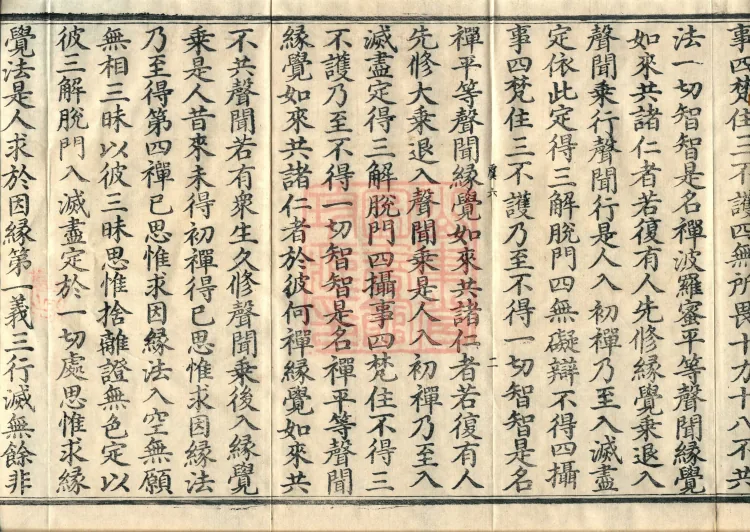 事四梵住三不護四無所畏十力十八不共
法一切智智是名禪波羅蜜平等聲聞緣覺
如來共諸仁者若復有人先修緣覺乘退入
聲聞乘行聲聞行是人入初禪乃至入滅盡
定依此定得三解脫門四無礙辯不得四攝
事四梵住三不護乃至不得一切智智是名
虞六 二
禪平等聲聞緣覺如來共諸仁者若復有人
先修大乘退入聲聞乘是人入初禪乃至入
滅盡定得三解脫門四攝事四梵住不得三
不護乃至不得一切智智是名禪平等聲聞
緣覺如來共諸仁者於彼何禪緣覺如來共
不共聲聞若有衆生久修聲聞乘後入緣覺
乘是人昔來未得初禪得已思惟求因緣法
乃至得第四禪已思惟求因緣法入空無願
無相三昧以彼三昧思惟捨離證無色定以
彼三解脫門入滅盡定於一切處思惟求緣
覺法是人求於因緣第一義三行滅無餘非